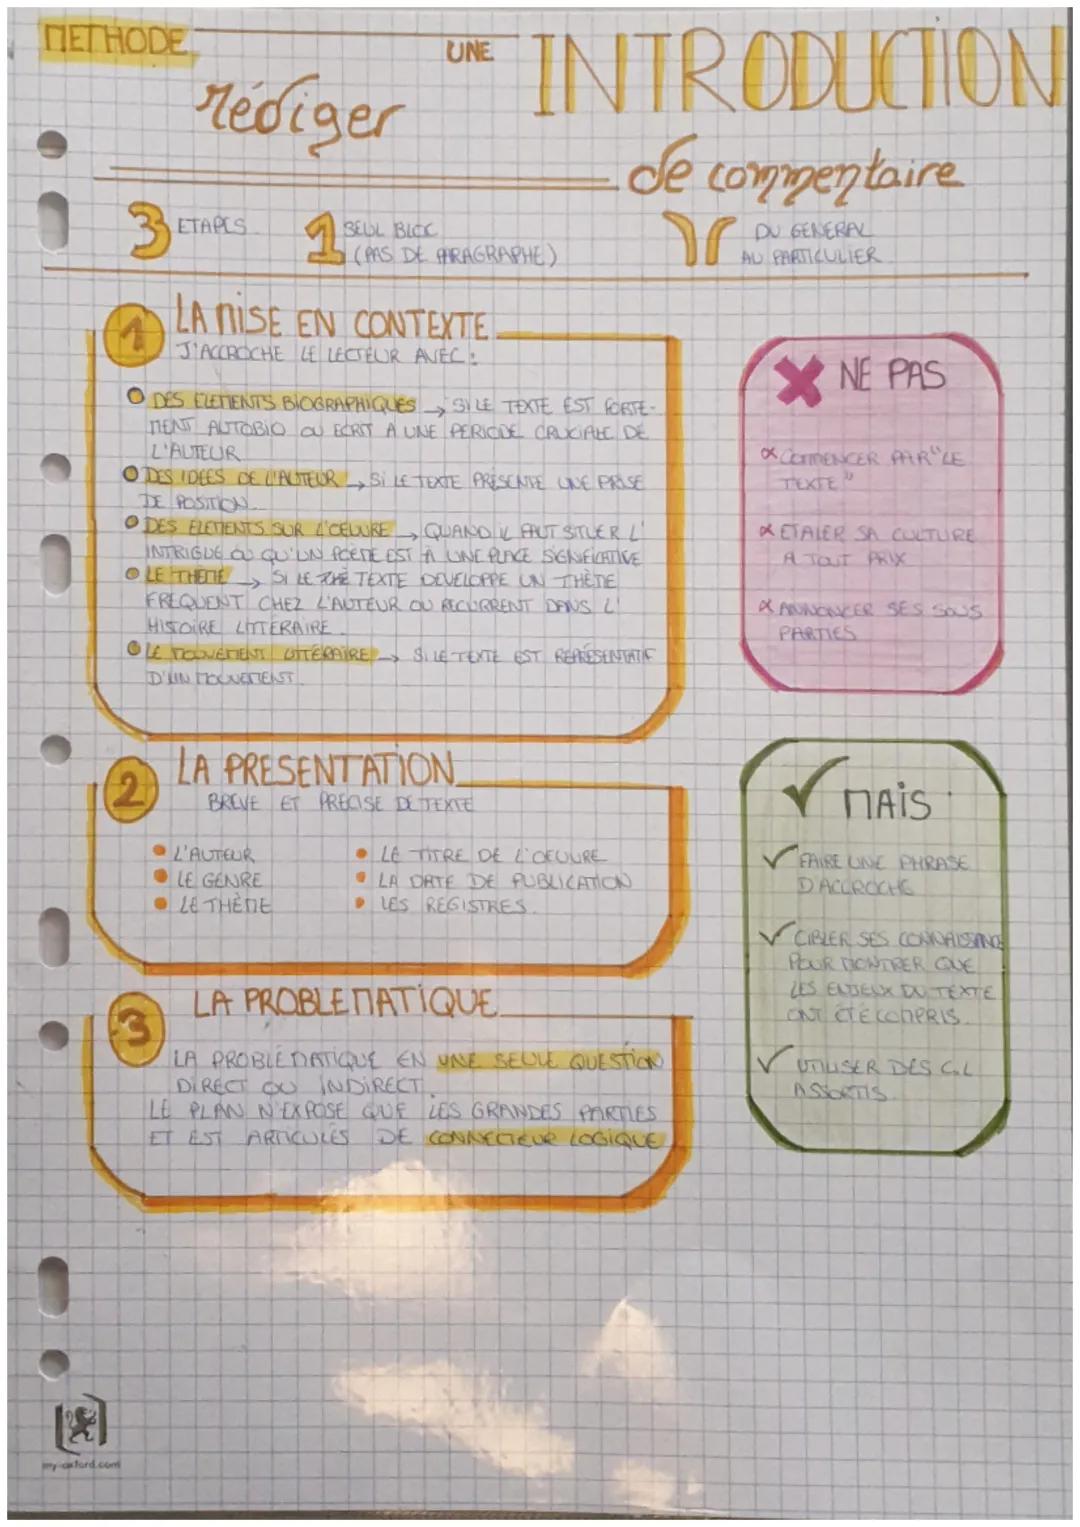 METHODE
rédiger
UNE INTRODUCTION
de commentaire
3 ETAPES
1 SEUL BLOC
(PAS DE PARAGRAPHE)
DU GENERAL
AU PARTICULIER
1 LA MISE EN CONTEXTE
J'ACCROCHE LE LECTEUR AVEC :
DES ELEMENTS BIOGRAPHIQUES → SI LE TEXTE EST FORTE-
MENT AUTOBIO OU ECRIT A UNE PERIODE CRUCIALE DE
L'AUTEUR
DES IDEES DE L'AUTEUR → SI LE TEXTE PRÉSENTE UNE PRISE
DE POSITION
DES ELEMENTS SUR L'OEUVRE → QUAND IL FAUT SITUER L'
INTRIGUE OU QU'UN POÈME EST À UNE PLACE SIGNIFICATIVE
LE THEME → SI LE TEXTE DEVELOPPE UN THÈME
FREQUENT CHEZ L'AUTEUR OU RECURRENT DANS L'
HISTOIRE LITTERAIRE.
LE MOUVEMENT LITTÉRAIRE → SI LE TEXTE EST REPRÉSENTATIF
D'UN MOUVEMENT.
2 LA PRESENTATION
BREVE ET PRECISE DE TEXTE
• L'AUTEUR
• LE GENRE
• LE THÈME
• LE TITRE DE L'OEUVRE
• LA DATE DE PUBLICATION
• LES REGISTRES.
3 LA PROBLEMATIQUE
LA PROBLÉMATIQUE EN UNE SEULE QUESTION
DIRECT OU INDIRECT.
LE PLAN N'EXPOSE QUE LES GRANDES PARTIES
ET EST ARTICULÉS DE CONNECTEUR LOGIQUE
NE PAS
COMMENCER PAR "LE
TEXTE"
ETALER SA CULTURE
A TOUT PRIX
ANNONCER SES SOUS
PARTIES
MAIS
FAIRE UNE PHRASE
D'ACCROCHE
CIBLER SES CONNAISSANCE
POUR MONTRER QUE
LES ENJEUX DU TEXTE
ONT ÉTÉ COMPRIS.
UTILISER DES C.L
ASSORTIS.
my-oxford.com